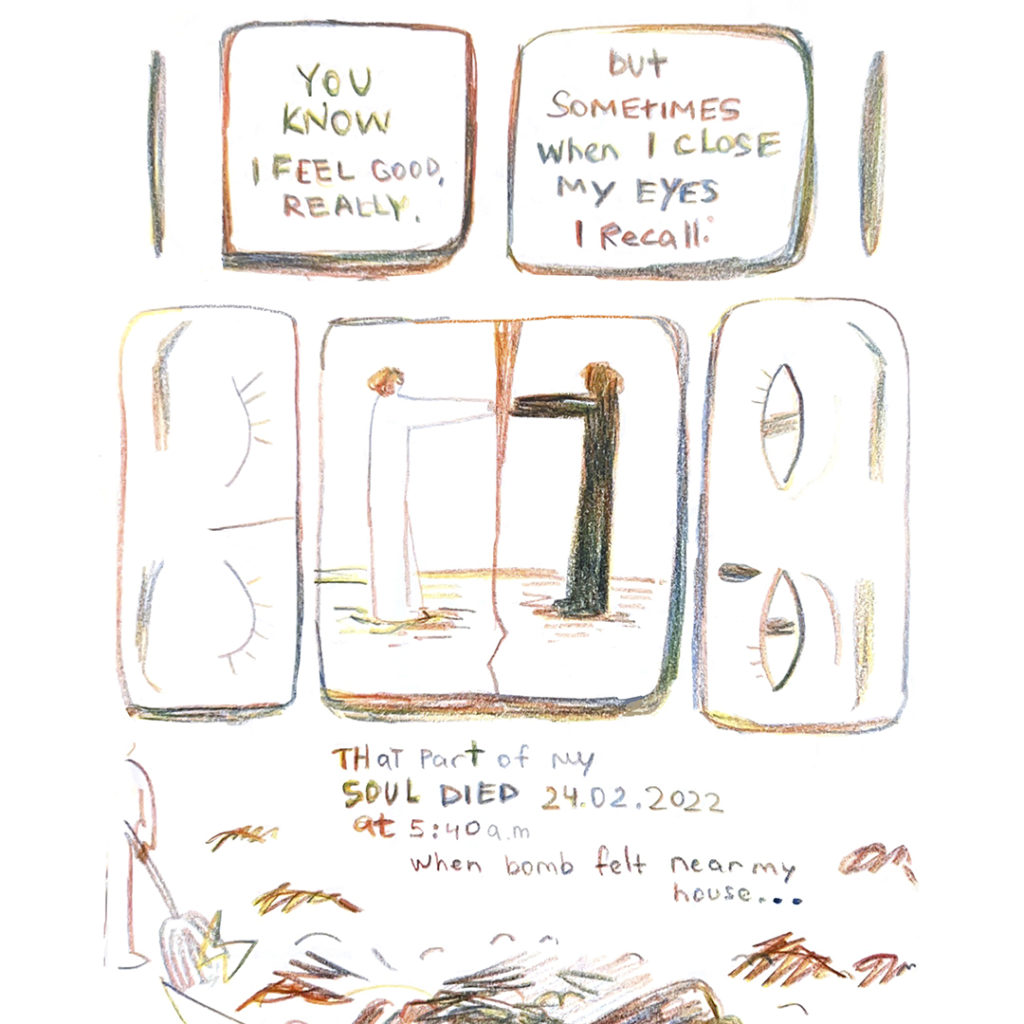 YOU
KNOW
I FEEL GOOD,
REALLY.
but
SOMETIMES
when I CLOSE
MY EYES
I Recall:
THat Part of My
SOUL DIED 24.02.2022
at 5:40 a.m
when bomb felt near my
house...